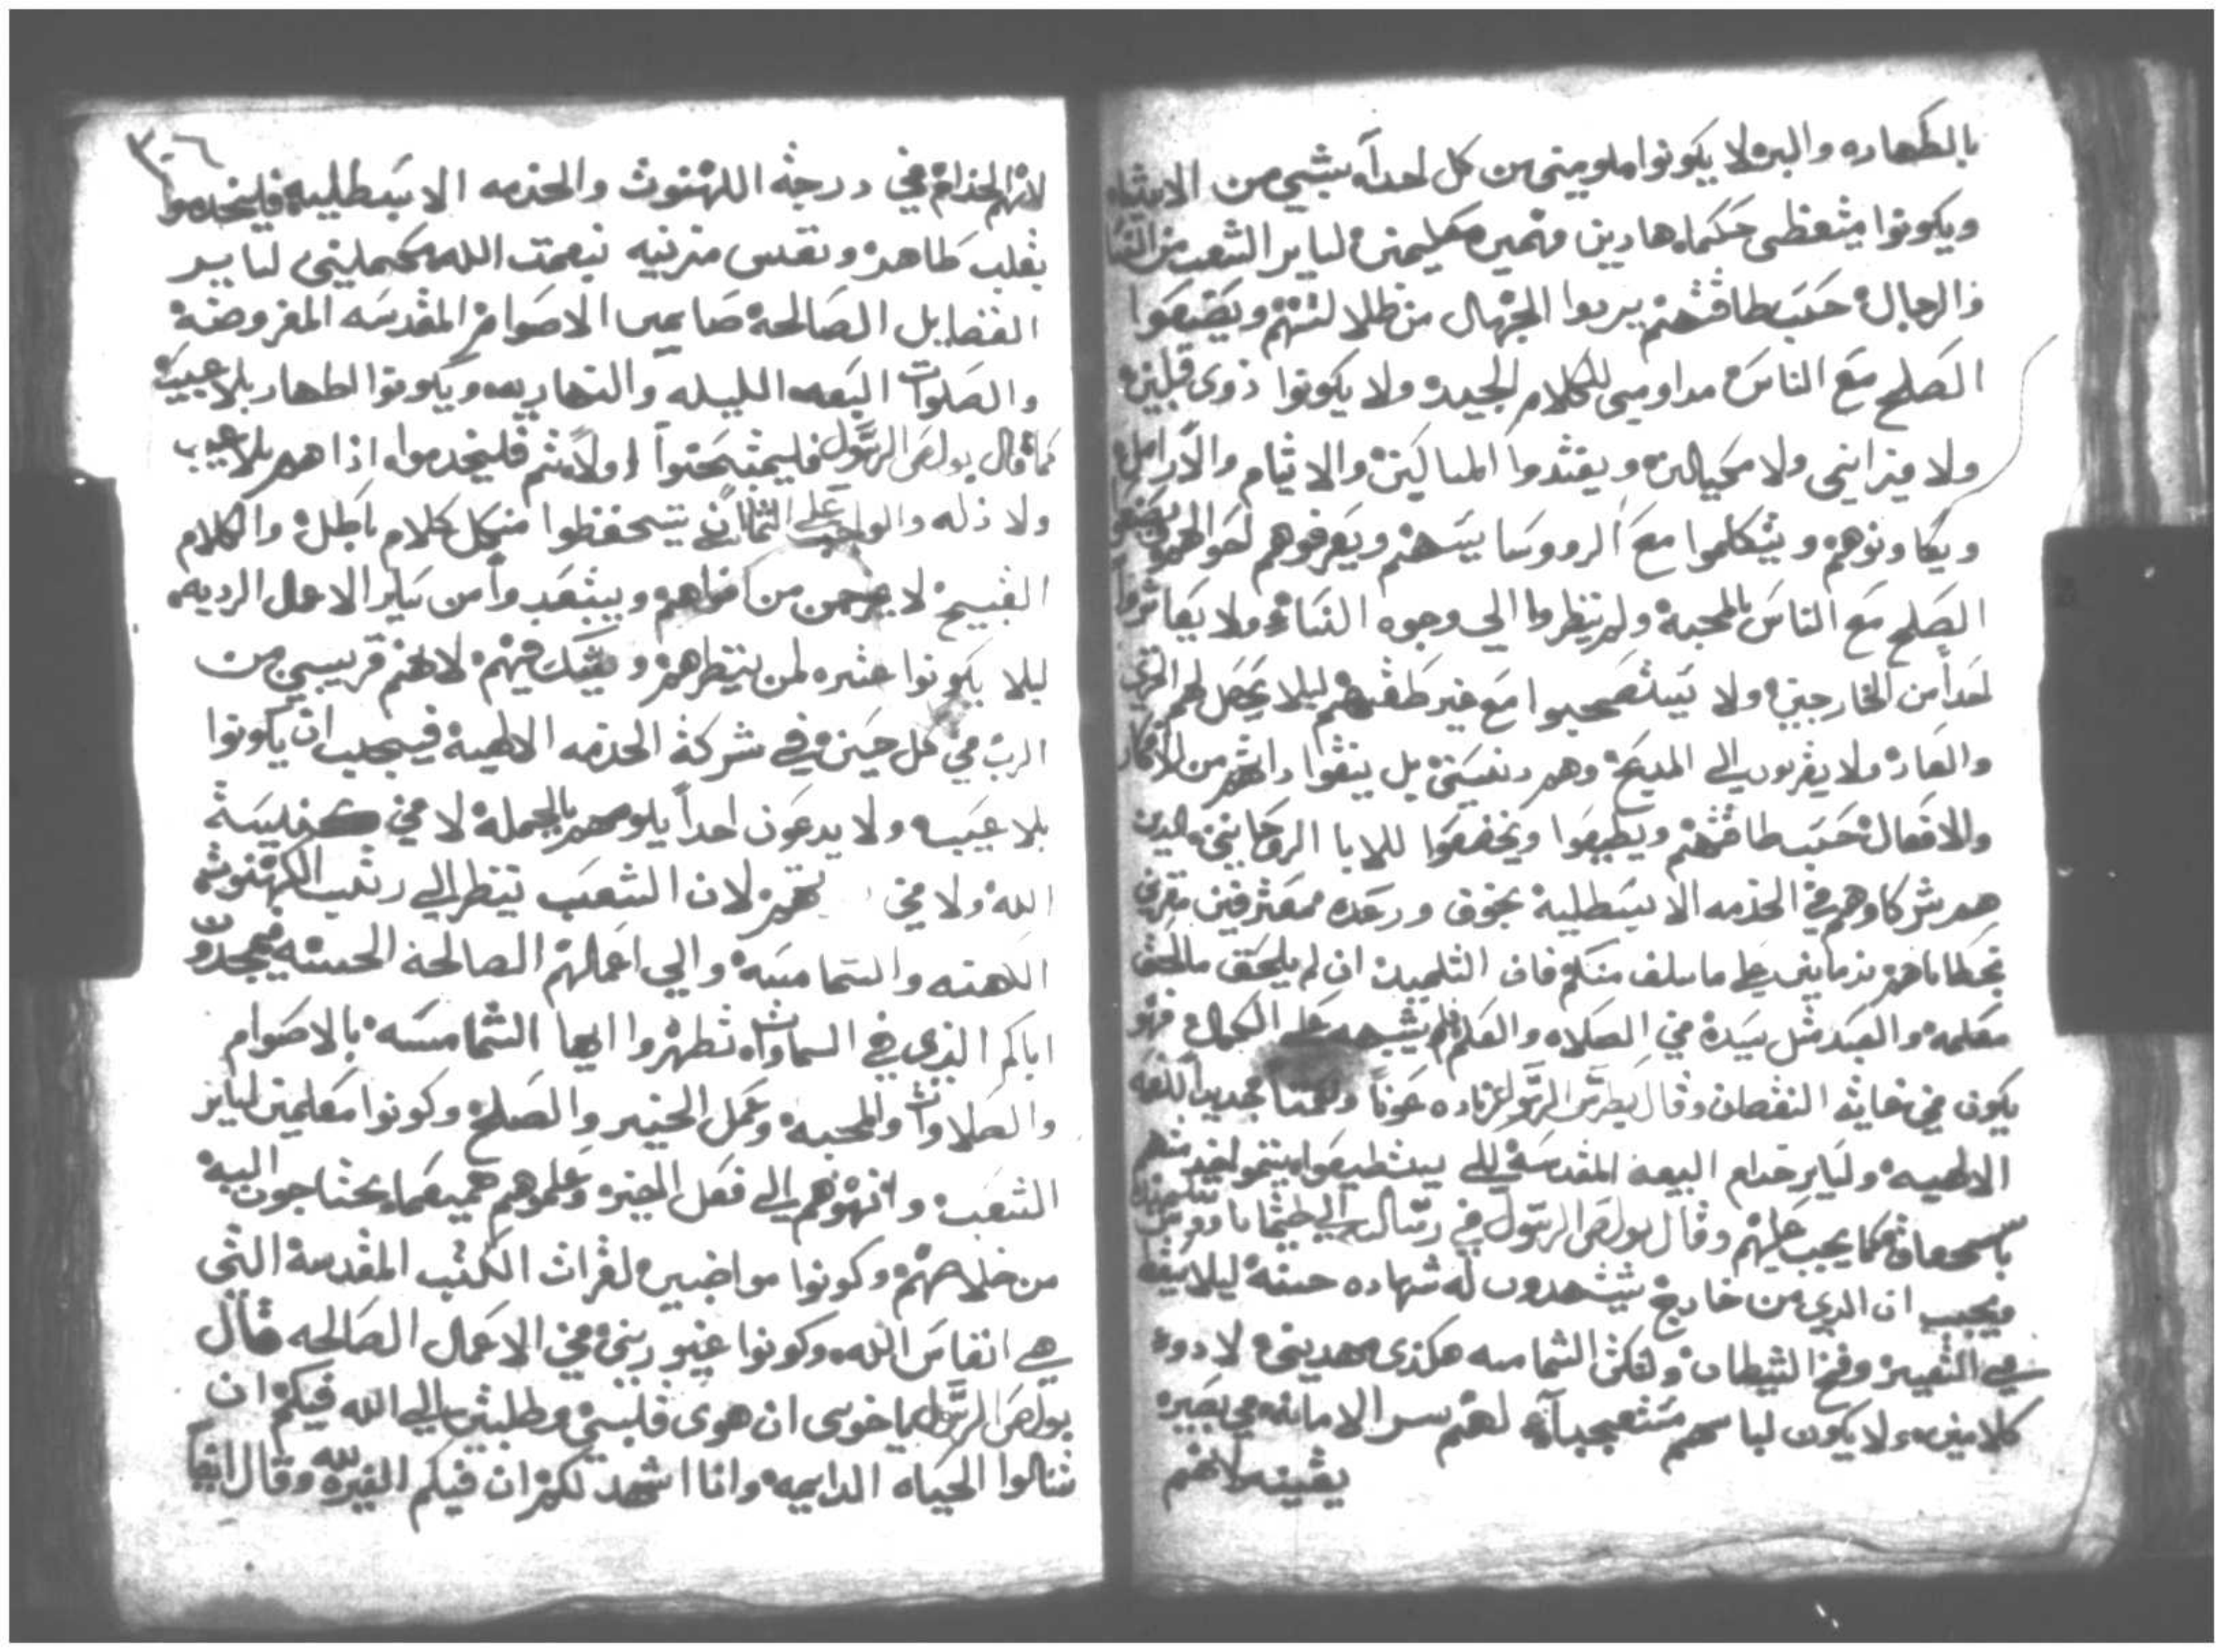 بالطهاره والبر لا يكونوا ملومين من كل احداً بشي من الاشيا
ويكونوا متعظى حكماء هادين فهمين معلمين لساير الشعب من النسا
والرجال حسب طاقتهم يردوا الجهال من ظلالتهم ويصنعوا
الصلح مع الناس مداومين للكلام الجيد ولا يكونوا ذوى قلبين
ولا ميزانين ولا مكيالين ويفتقدوا المساكين والايتام والارامل
ويعاونوهم ويتكلموا مع الرووسا بسببهم ويعرفوهم احوالهم
الصلح مع الناس بالمحبه ولا ينظروا الي وجوه النساء ولا يعاشروا
احداً من الخارجين ولا يستصحبوا مع غير طقسهم ليلا يحصل لهم
والعار ولا يقربون الي المديح وهم دنسين بل ينقوا من الافكار
والافعال حسب طاقتهم ويطيعوا ويخضعوا للابا الروحانيين الدين
هم شركاوهم في الخدمه الابسطليه بخوف ورعده معترفين مقرين
بخطاياهم نادمين على ما سلف منهم فان التلميد ان لم يلحق
معلمه والعبد مثل سيده في الصلاه والعلم يشبهه على الكمال فهو
يكون في غاية النقصان وقال بطرس الرسول عوناً
الالاهيه ولساير خدام البيعه المقدسه لكي يستطيعوا يتموا خدمتهم
باستحقاق كما يجب عليهم وقال بولص الرسول في رسالته الي طيماتاوس
ويجب ان الدي من خارج يشهدون له شهاده حسنة ليلا يقع
في التعيير وفخ الشيطان ولتكن الشمامسه هكذى مهدبين لا دوى
كلامين ولا يكون لباسهم متعجباً لهم سر الامانه في بصيره
يقينيه لانهم
٣٠٦
لانهم الخدام في درجة الكهنوت والخدمه الابسطليه فليخدموا
بقلب طاهر ونفس بنعمة الله مكملين لساير
الفضايل الصالحة صايمين الاصوام المقدسه المفروضة
والصلوات الليليه والنهاريه ويكونوا اطهار بلا عيب
كما قال بولص الرسول فليمتحنوا اولاً ثم فليخدموا اذا هم بلا عيب
ولا زله والواجب على الشمامسة يتحفظوا من كل كلام باطل والكلام
القبيح لا يخرجن من افواههم ويبتعدوا من ساير الاعمال الرديه
ليلا يكونوا عثره لمن ينظرهم ويشك فيهم لانهم قريبين من
الرب في كل حين في شركة الخدمه الالهية فيجب ان يكونوا
بلا عيب ولا يدعون احداً يلومهم بالجملة لا في كنيسة
الله ولا في لان الشعب ينظر الي رتب الكهنوت
الكهنه والشمامسة والي اعمالهم الصالحة الحسنه فيمجدوا
اباكم الذي في السماوات تطهروا ايها الشمامسه بالاصوام
والصلاوات والمحبه وعمل الخير والصلح وكونوا معلمين لساير
الشعب وانهوهم الي فعل الخير وعلموهم جميع ما يحتاجون اليه
من خلاصهم وكونوا مواضبين لقرات الكتب المقدسة التي
هي انفاس الله وكونوا غيورين في الاعمال الصالحه قال
بولص الرسول يا خوتي ان هوى قلبي وطلبتي الي الله فيكم ان
تنالوا الحياه الدايمه وانا اشهد لكم ان فيكم الغيره لله وقال ايضاً